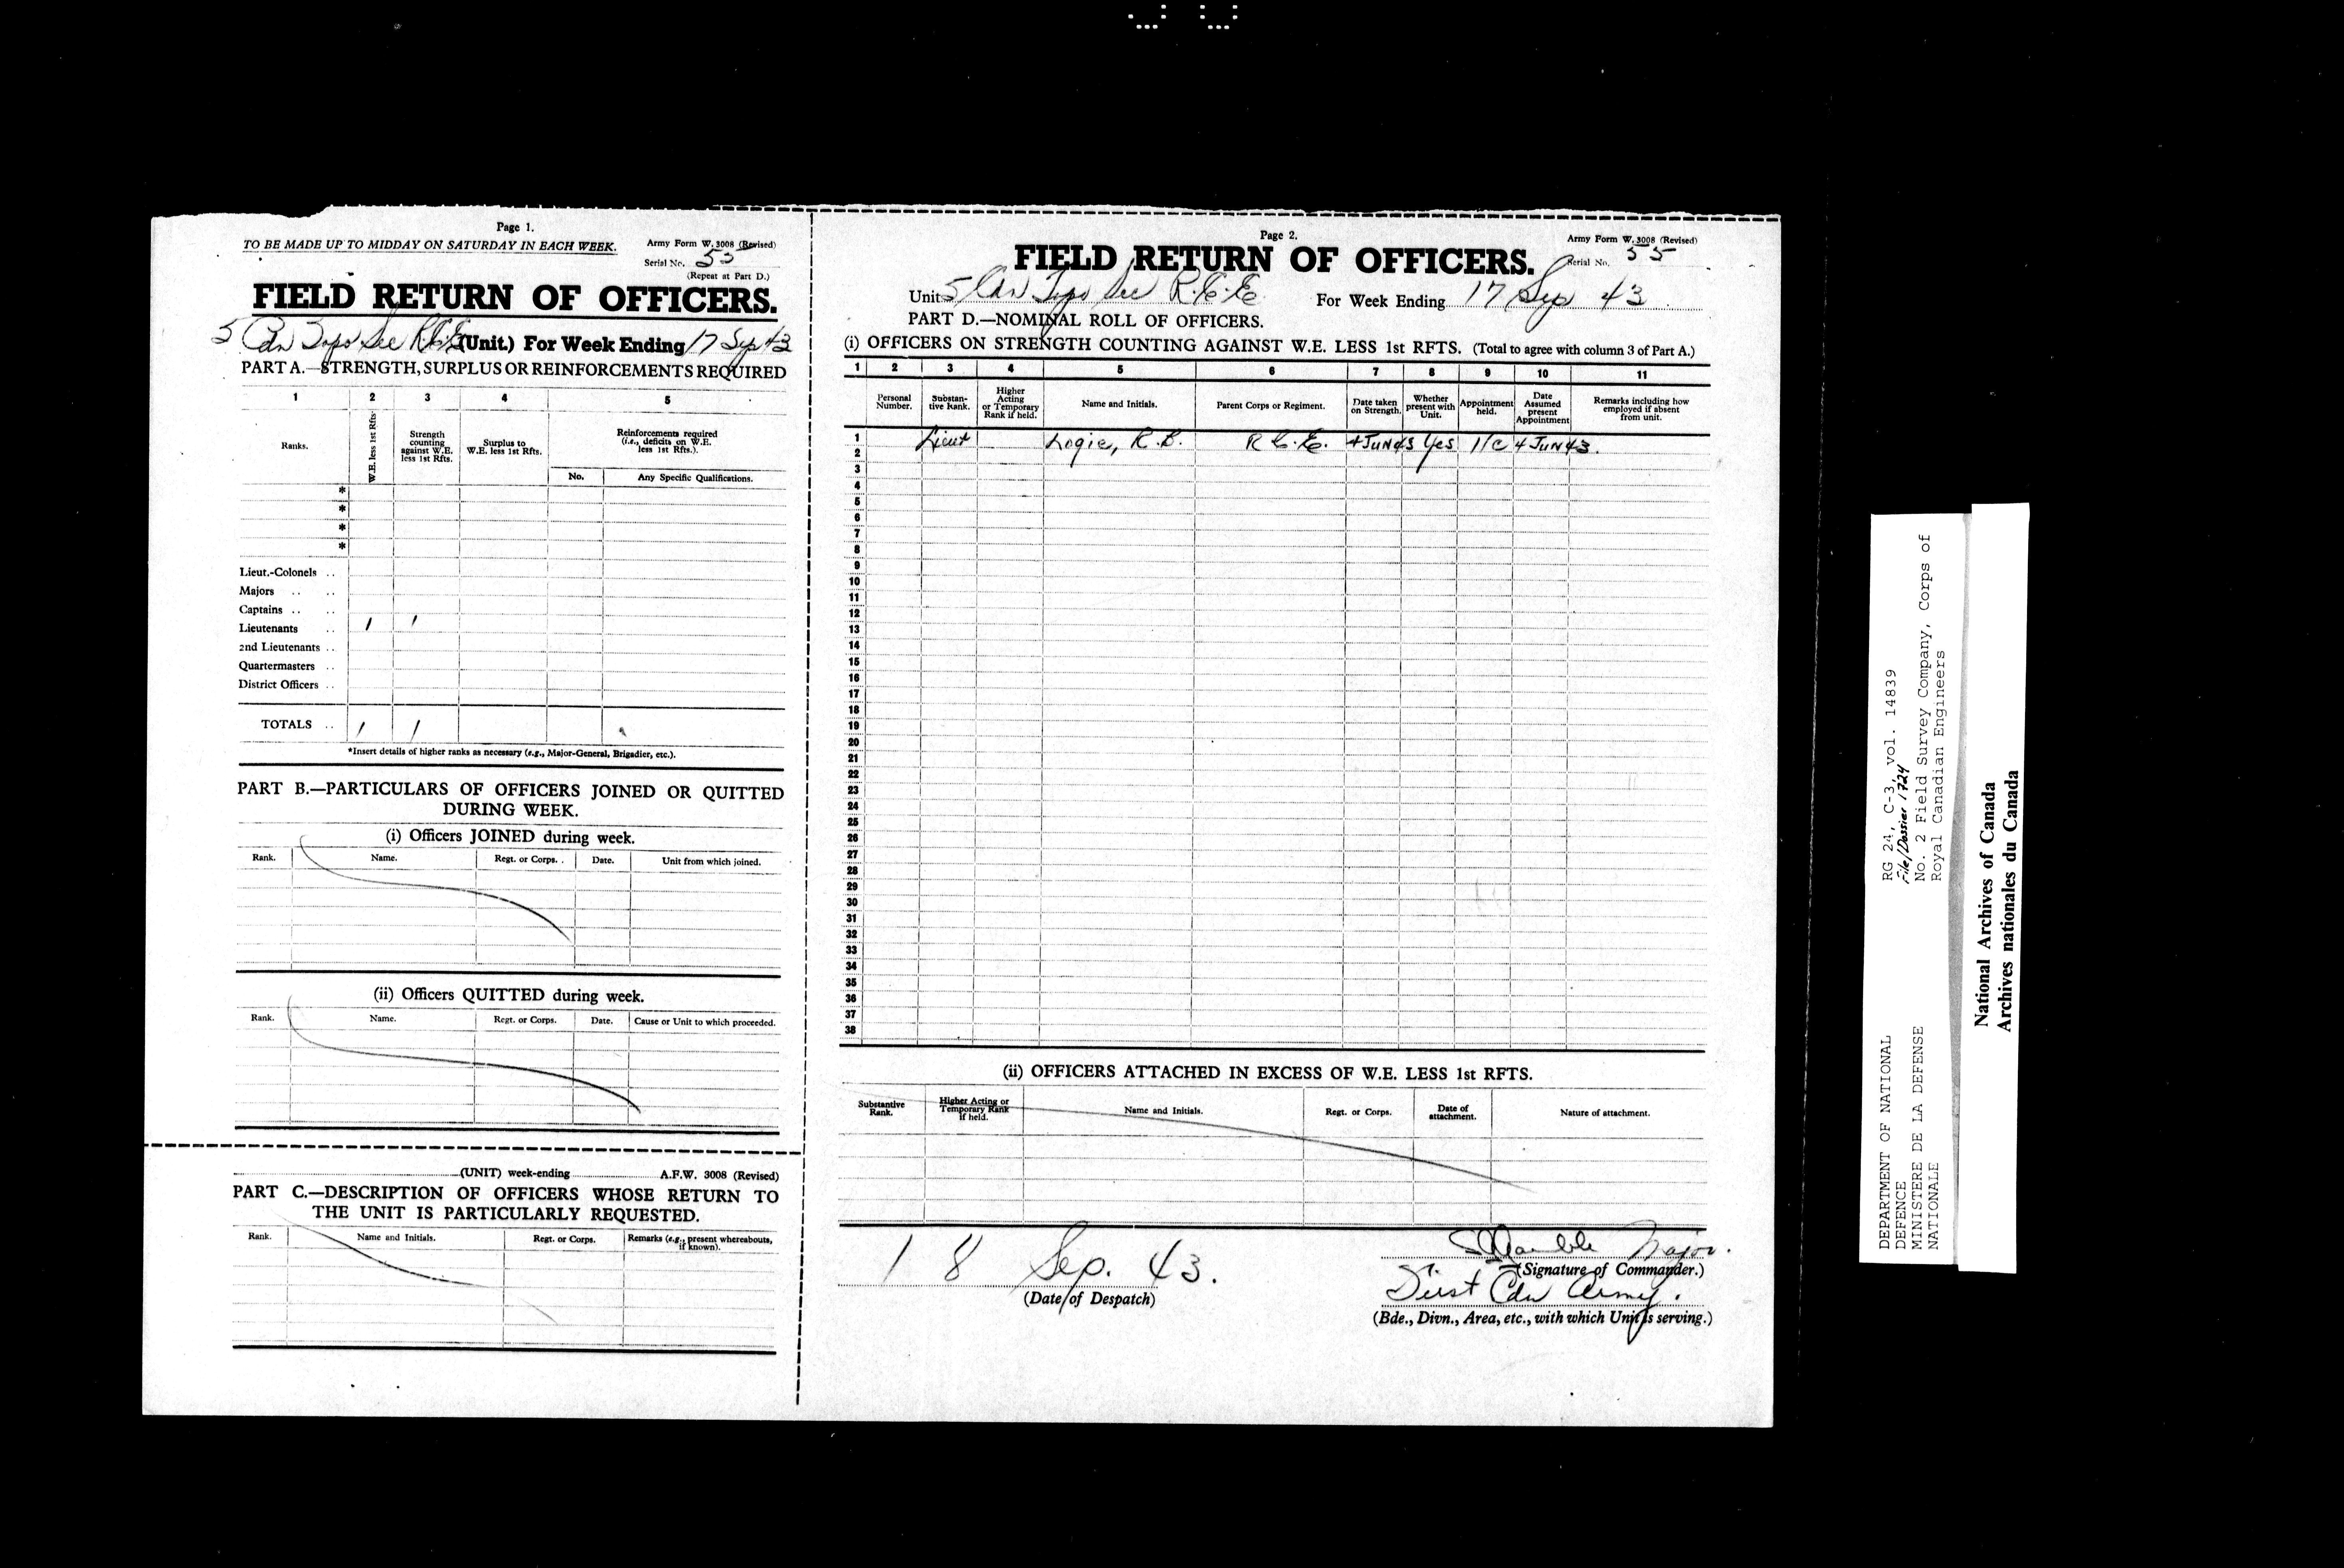 Page 1.
TO BE MADE UP TO MIDDAY ON SATURDAY IN EACH WEEK.
Army Form W. 3008 (Revised)
Serial No. 55
(Repeat at Part D.)
FIELD RETURN OF OFFICERS.
5 Cdn Topo Sec RCE (Unit.) For Week Ending 17 Sep 43
PART A.—STRENGTH, SURPLUS OR REINFORCEMENTS REQUIRED
1 2 3 4 5
Ranks.
W.E. less 1st Rfts.
Strength counting against W.E. less 1st Rfts.
Surplus to W.E. less 1st Rfts.
Reinforcements required (i.e., deficits on W.E. less 1st Rfts.).
No. Any Specific Qualifications.
*
*
*
*
Lieut.-Colonels ..
Majors .. ..
Captains .. ..
Lieutenants .. 1 1
2nd Lieutenants ..
Quartermasters ..
District Officers ..
TOTALS .. 1 1
*Insert details of higher ranks as necessary (e.g., Major-General, Brigadier, etc.).
PART B.—PARTICULARS OF OFFICERS JOINED OR QUITTED
DURING WEEK.
(i) Officers JOINED during week.
Rank. Name. Regt. or Corps. Date. Unit from which joined.
(ii) Officers QUITTED during week.
Rank. Name. Regt. or Corps. Date. Cause or Unit to which proceeded.
(UNIT) week-ending A.F.W. 3008 (Revised)
PART C.—DESCRIPTION OF OFFICERS WHOSE RETURN TO
THE UNIT IS PARTICULARLY REQUESTED.
Rank. Name and Initials. Regt. or Corps. Remarks (e.g., present whereabouts, if known).
Page 2.
Army Form W. 3008 (Revised)
Serial No. 55
FIELD RETURN OF OFFICERS.
Unit 5 Cdn Topo Sec R.C.E. For Week Ending 17 Sep 43
PART D.—NOMINAL ROLL OF OFFICERS.
(i) OFFICERS ON STRENGTH COUNTING AGAINST W.E. LESS 1st RFTS. (Total to agree with column 3 of Part A.)
1 2 3 4 5 6 7 8 9 10 11
Personal Number.
Substantive Rank.
Higher Acting or Temporary Rank if held.
Name and Initials.
Parent Corps or Regiment.
Date taken on Strength.
Whether present with Unit.
Appointment held.
Date Assumed present Appointment
Remarks including how employed if absent from unit.
1 Lieut Logie, R.B. R.C.E. 4 Jun 43 Yes I/C 4 Jun 43.
2
3
4
5
6
7
8
9
10
11
12
13
14
15
16
17
18
19
20
21
22
23
24
25
26
27
28
29
30
31
32
33
34
35
36
37
38
(ii) OFFICERS ATTACHED IN EXCESS OF W.E. LESS 1st RFTS.
Substantive Rank.
Higher Acting or Temporary Rank if held.
Name and Initials.
Regt. or Corps.
Date of attachment.
Nature of attachment.
18 Sep. 43.
(Date of Despatch)
Major.
(Signature of Commander.)
First Cdn Army.
(Bde., Divn., Area, etc., with which Unit is serving.)
DEPARTMENT OF NATIONAL
DEFENCE
MINISTERE DE LA DEFENSE
NATIONALE
RG 24, C-3, vol. 14839
File/Dossier 1724
No. 2 Field Survey Company, Corps of
Royal Canadian Engineers
National Archives of Canada
Archives nationales du Canada